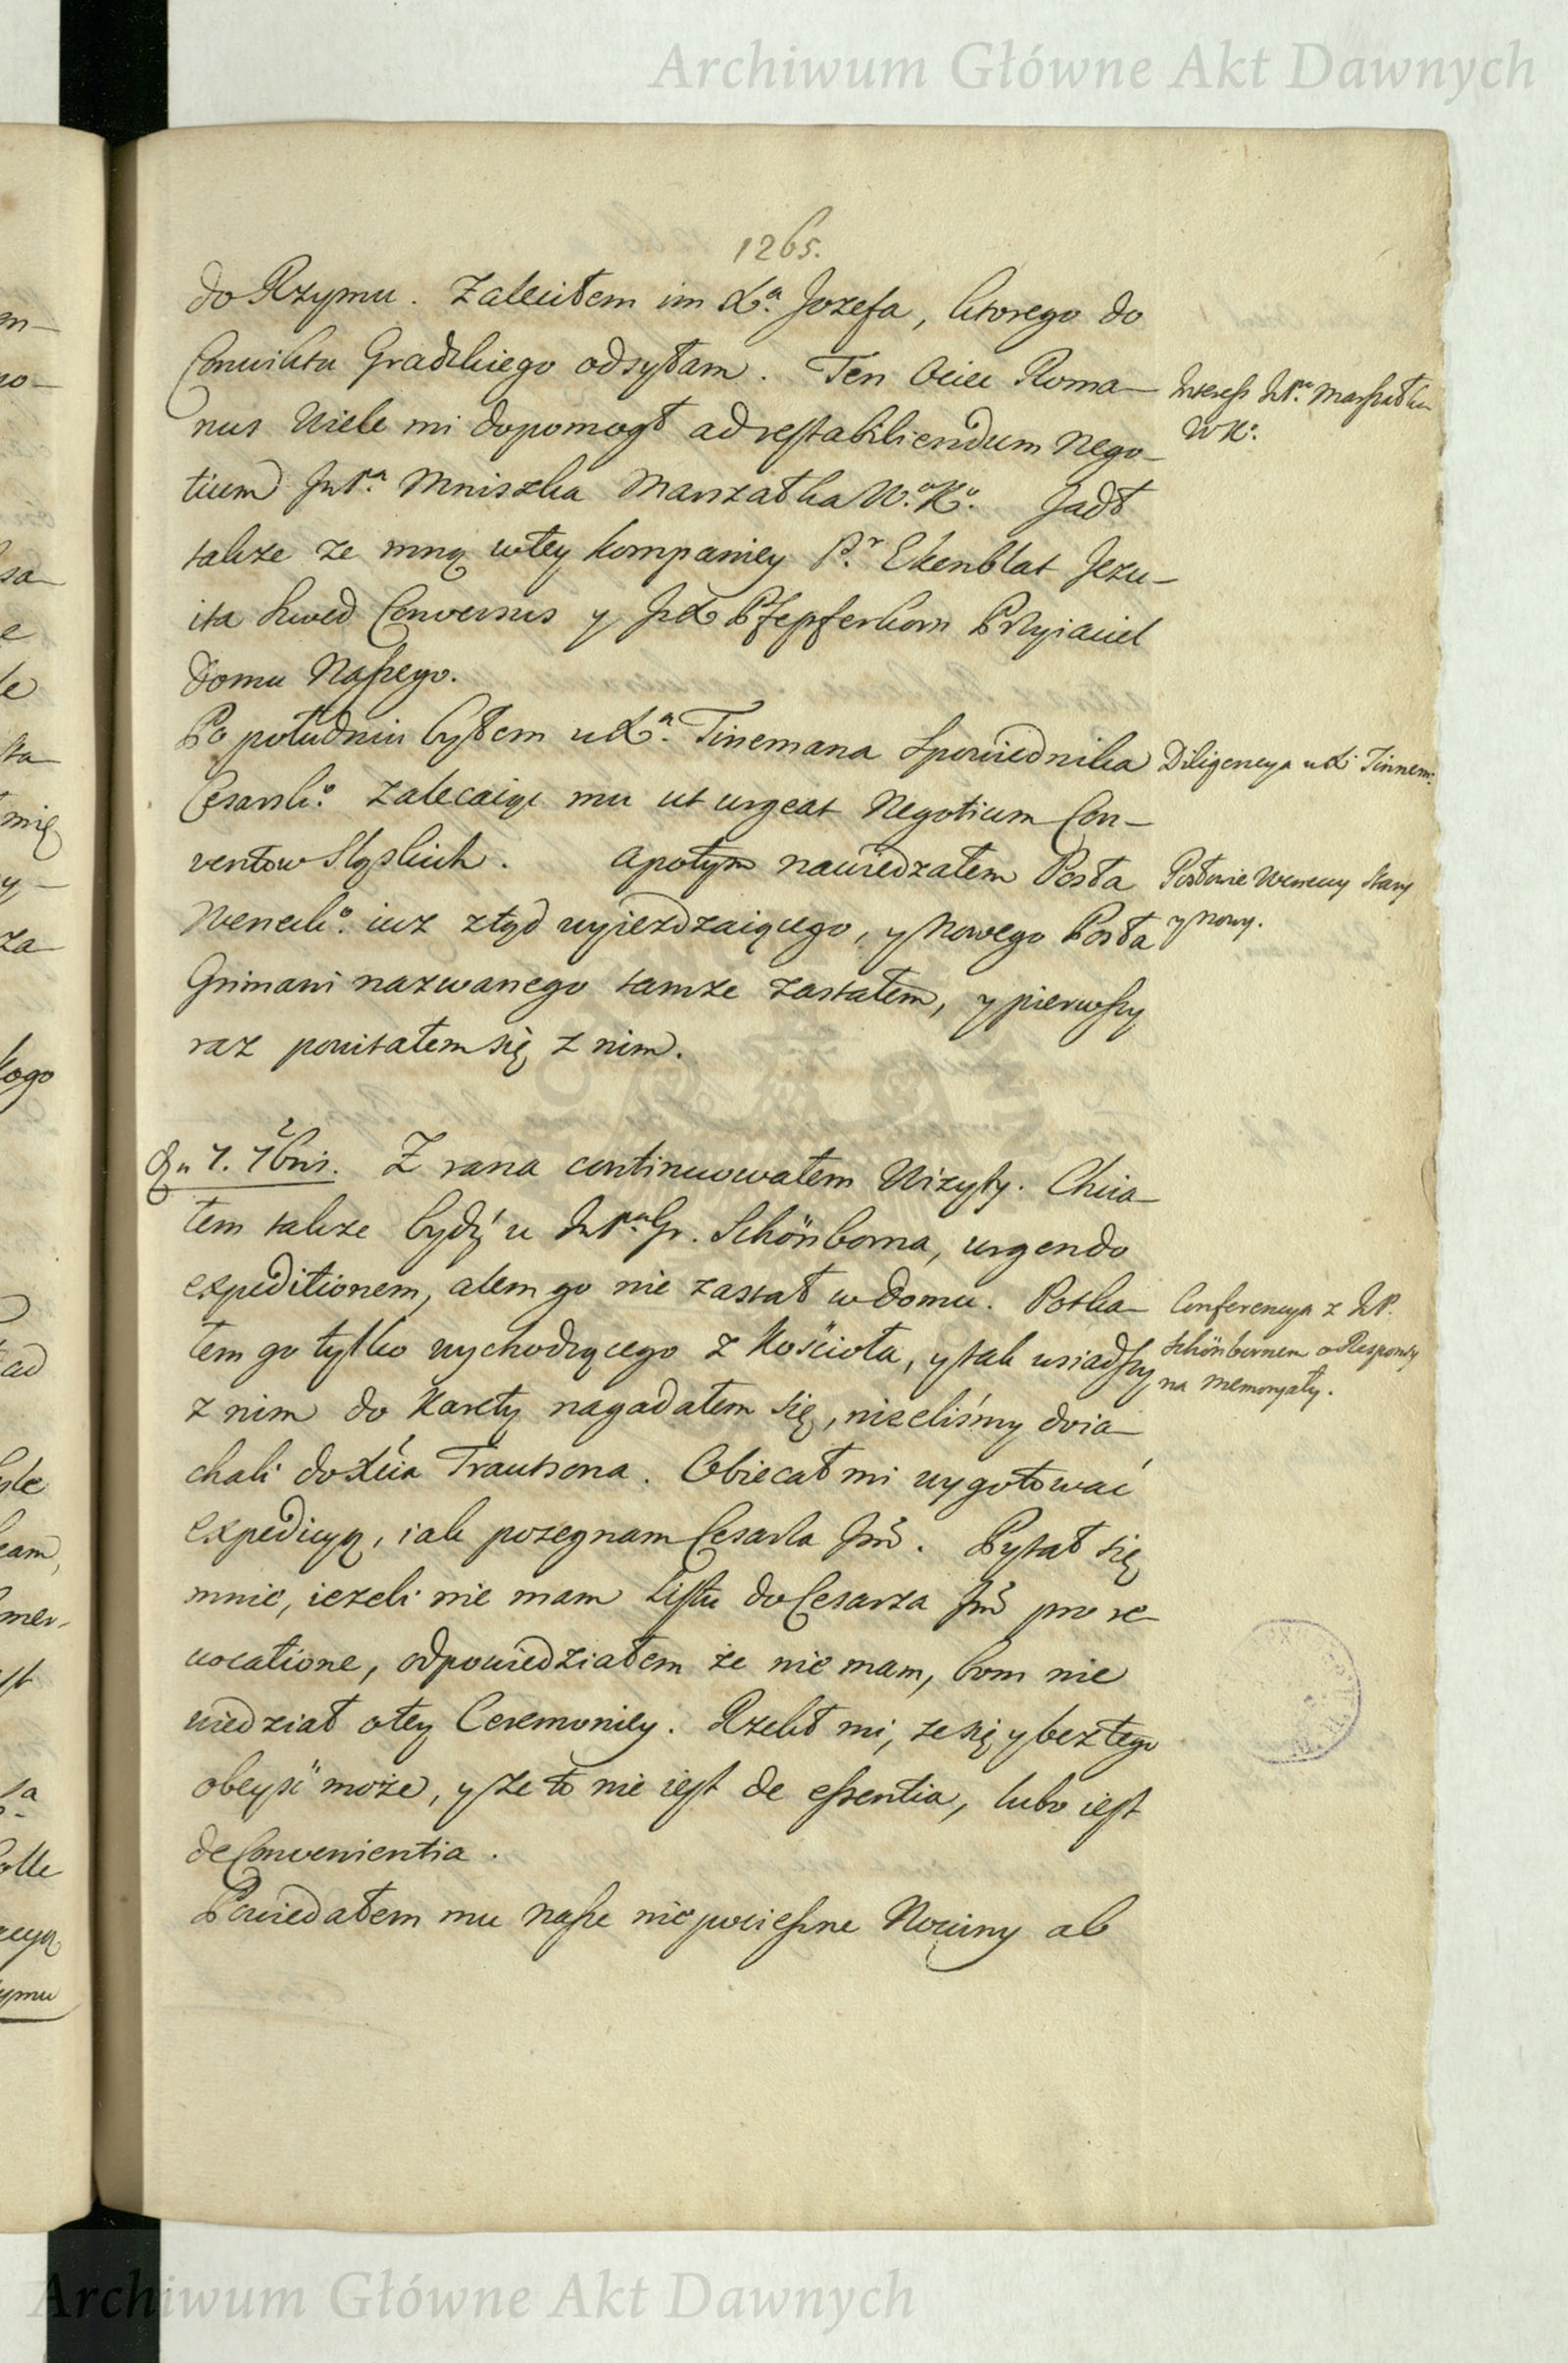 Archiwum Główne Akt Dawnych
1265.
do Rzymu. Zaleciłem im Xa. Jozefa, ktorego do
Conviktu Gradzkiego odsyłam. Ten Ociec Roma-
nus Wiele mi dopomogł ad restabiliendum Nego-
tium JmPa. Mniszka Marszałka W.K. Jadł
także ze mną w tey kompaniey Pr. Ekenblat Jezu-
ita Szwed Conversus y JX Pfepferkorn Przyiaciel
Domu Naszego.
Po południu byłem u Xa. Tinemana Spowiednika
Cesarsko. zalecaiąc mu ut urgeat Negotium Con-
ventow Sląskich. a potym nawiedzałem Posła
Wenecko. iuz ztąd wyjezdzaiącego, y Nowego Posła
Grimani nazwanego tamze zastałem, y pierwszy
raz powitałem się z nim.
Interess JmPa Marszałka
WK.
Diligencya u X. Tinnem:
Posłowie Weneccy Stary
y nowy.
D. 7. 7bris. Z rana continuowałem Wizyty. Chcia-
łem takze bydź u JmPa Gr. Schönborna, urgendo
expeditionem, alem go nie zastał w domu. Potka-
łem go tylko wychodzącego z Kościoła, y tak usiadszy
z nim do Karety nagadałem się, nizeliśmy doia-
chali do Xcia Trautsona. Obiecał mi wygotować
expedicyą, iak pozegnam Cesarza Jmć. Pytał się
mnie, iezeli nie mam Listu do Cesarza Jmć pro re-
vocatione, odpowiedziałem że nie mam, bom nie
wiedział o tey Ceremoniey. Rzekł mi, ze się y bez tego
obeyść może, y ze to nie iest de essentia, lubo iest
de Convenientia.
Powiedałem mu nasze niepocieszne Nowiny ab
Conferencya z JP.
Schönbornem o Responsy
na memoryały.
Archiwum Główne Akt Dawnych